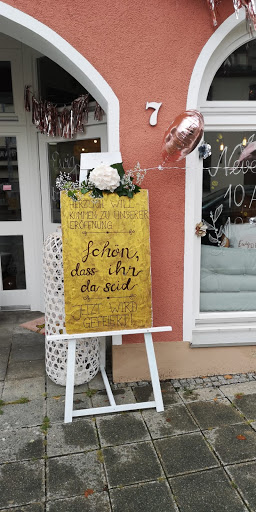 7
HERZLICH WILL
KOMMEN ZU UNSERER
ERÖFFNUNG
Schön,
dass ihr
da seid
JETZT WIRD
GEFEIERT
10